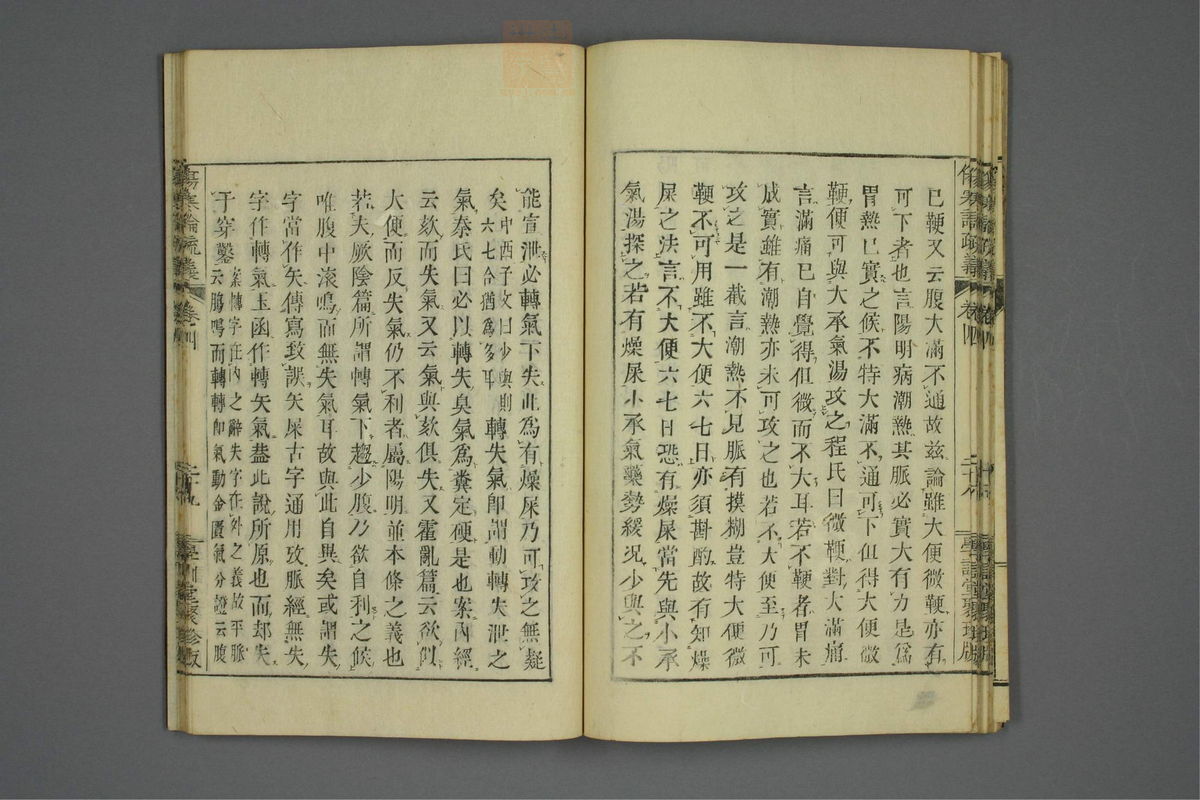 已鞕又云腹大滿不通故茲論雖大便微鞕亦有
可下者也言陽明病潮熱其脈必實大有力是爲
胃熱已實之候不特大滿不通可下但得大便微
鞕便可與大承氣湯攻之程氏曰微鞕對大滿痛
言滿痛已自覺得但微而不大耳若不鞕者胃未
成實雖有潮熱亦未可攻之也若不大便至乃可
攻之是一截言潮熱不見脈有摸糊豈特大便微
鞕不可用雖不大便六七日亦須斟酌故有知燥
屎之法言不大便六七日恐有燥屎當先與小承
氣湯探之若有燥屎小承氣藥勢緩况少與之不
傷寒論疏義 卷四
能宣泄必轉氣下失此爲有燥屎乃可攻之無疑
矣中西子文曰少與則六七合猶爲多耳轉失氣卽謂動轉失泄之
氣秦氏曰必以轉失臭氣爲糞定硬是也案內經
云欬而失氣又云氣與欬俱失又霍亂篇云欲似
大便而反失氣仍不利者屬陽明並本條之義也
若夫厥陰篇所謂轉氣下趨少腹乃欲自利之候
唯腹中滾鳴而無失氣耳故與此自異矣或謂失
字當作矢傳寫致誤矢屎古字通用攷脈經無失
字作轉氣玉函作轉矢氣葢此說所原也而却失
于穿鑿案轉字在內之辭失字在外之義故平脈云腸鳴而轉轉卽氣動金匱氣分證云腹
傷寒論疏義 卷四